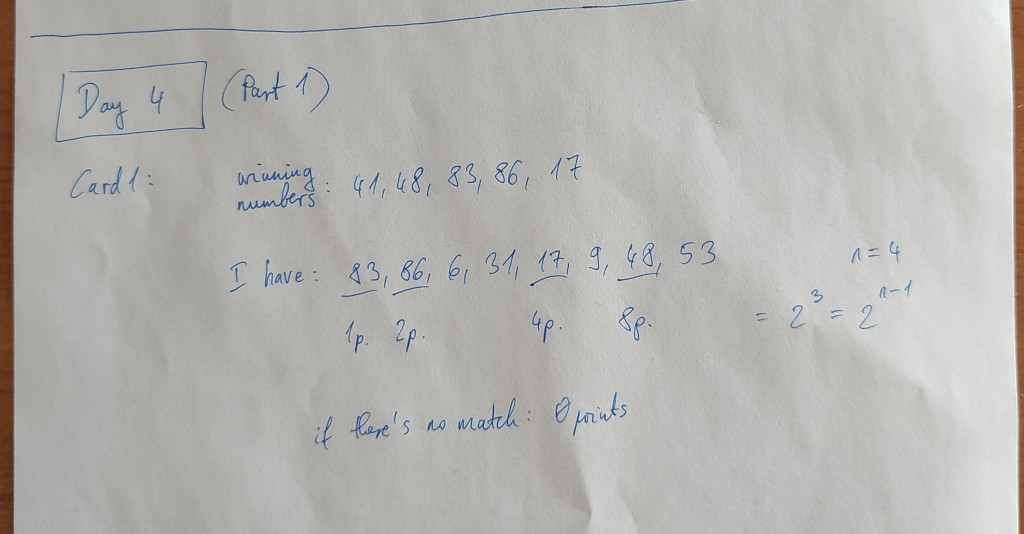 Day 4 (Part 1)
Card 1: winning numbers: 41, 48, 83, 86, 17
I have: 83, 86, 6, 31, 17, 9, 48, 53
n=4
1p. 2p. 4p. 8p. = 2³ = 2ⁿ⁻¹
if there's no match: 0 points